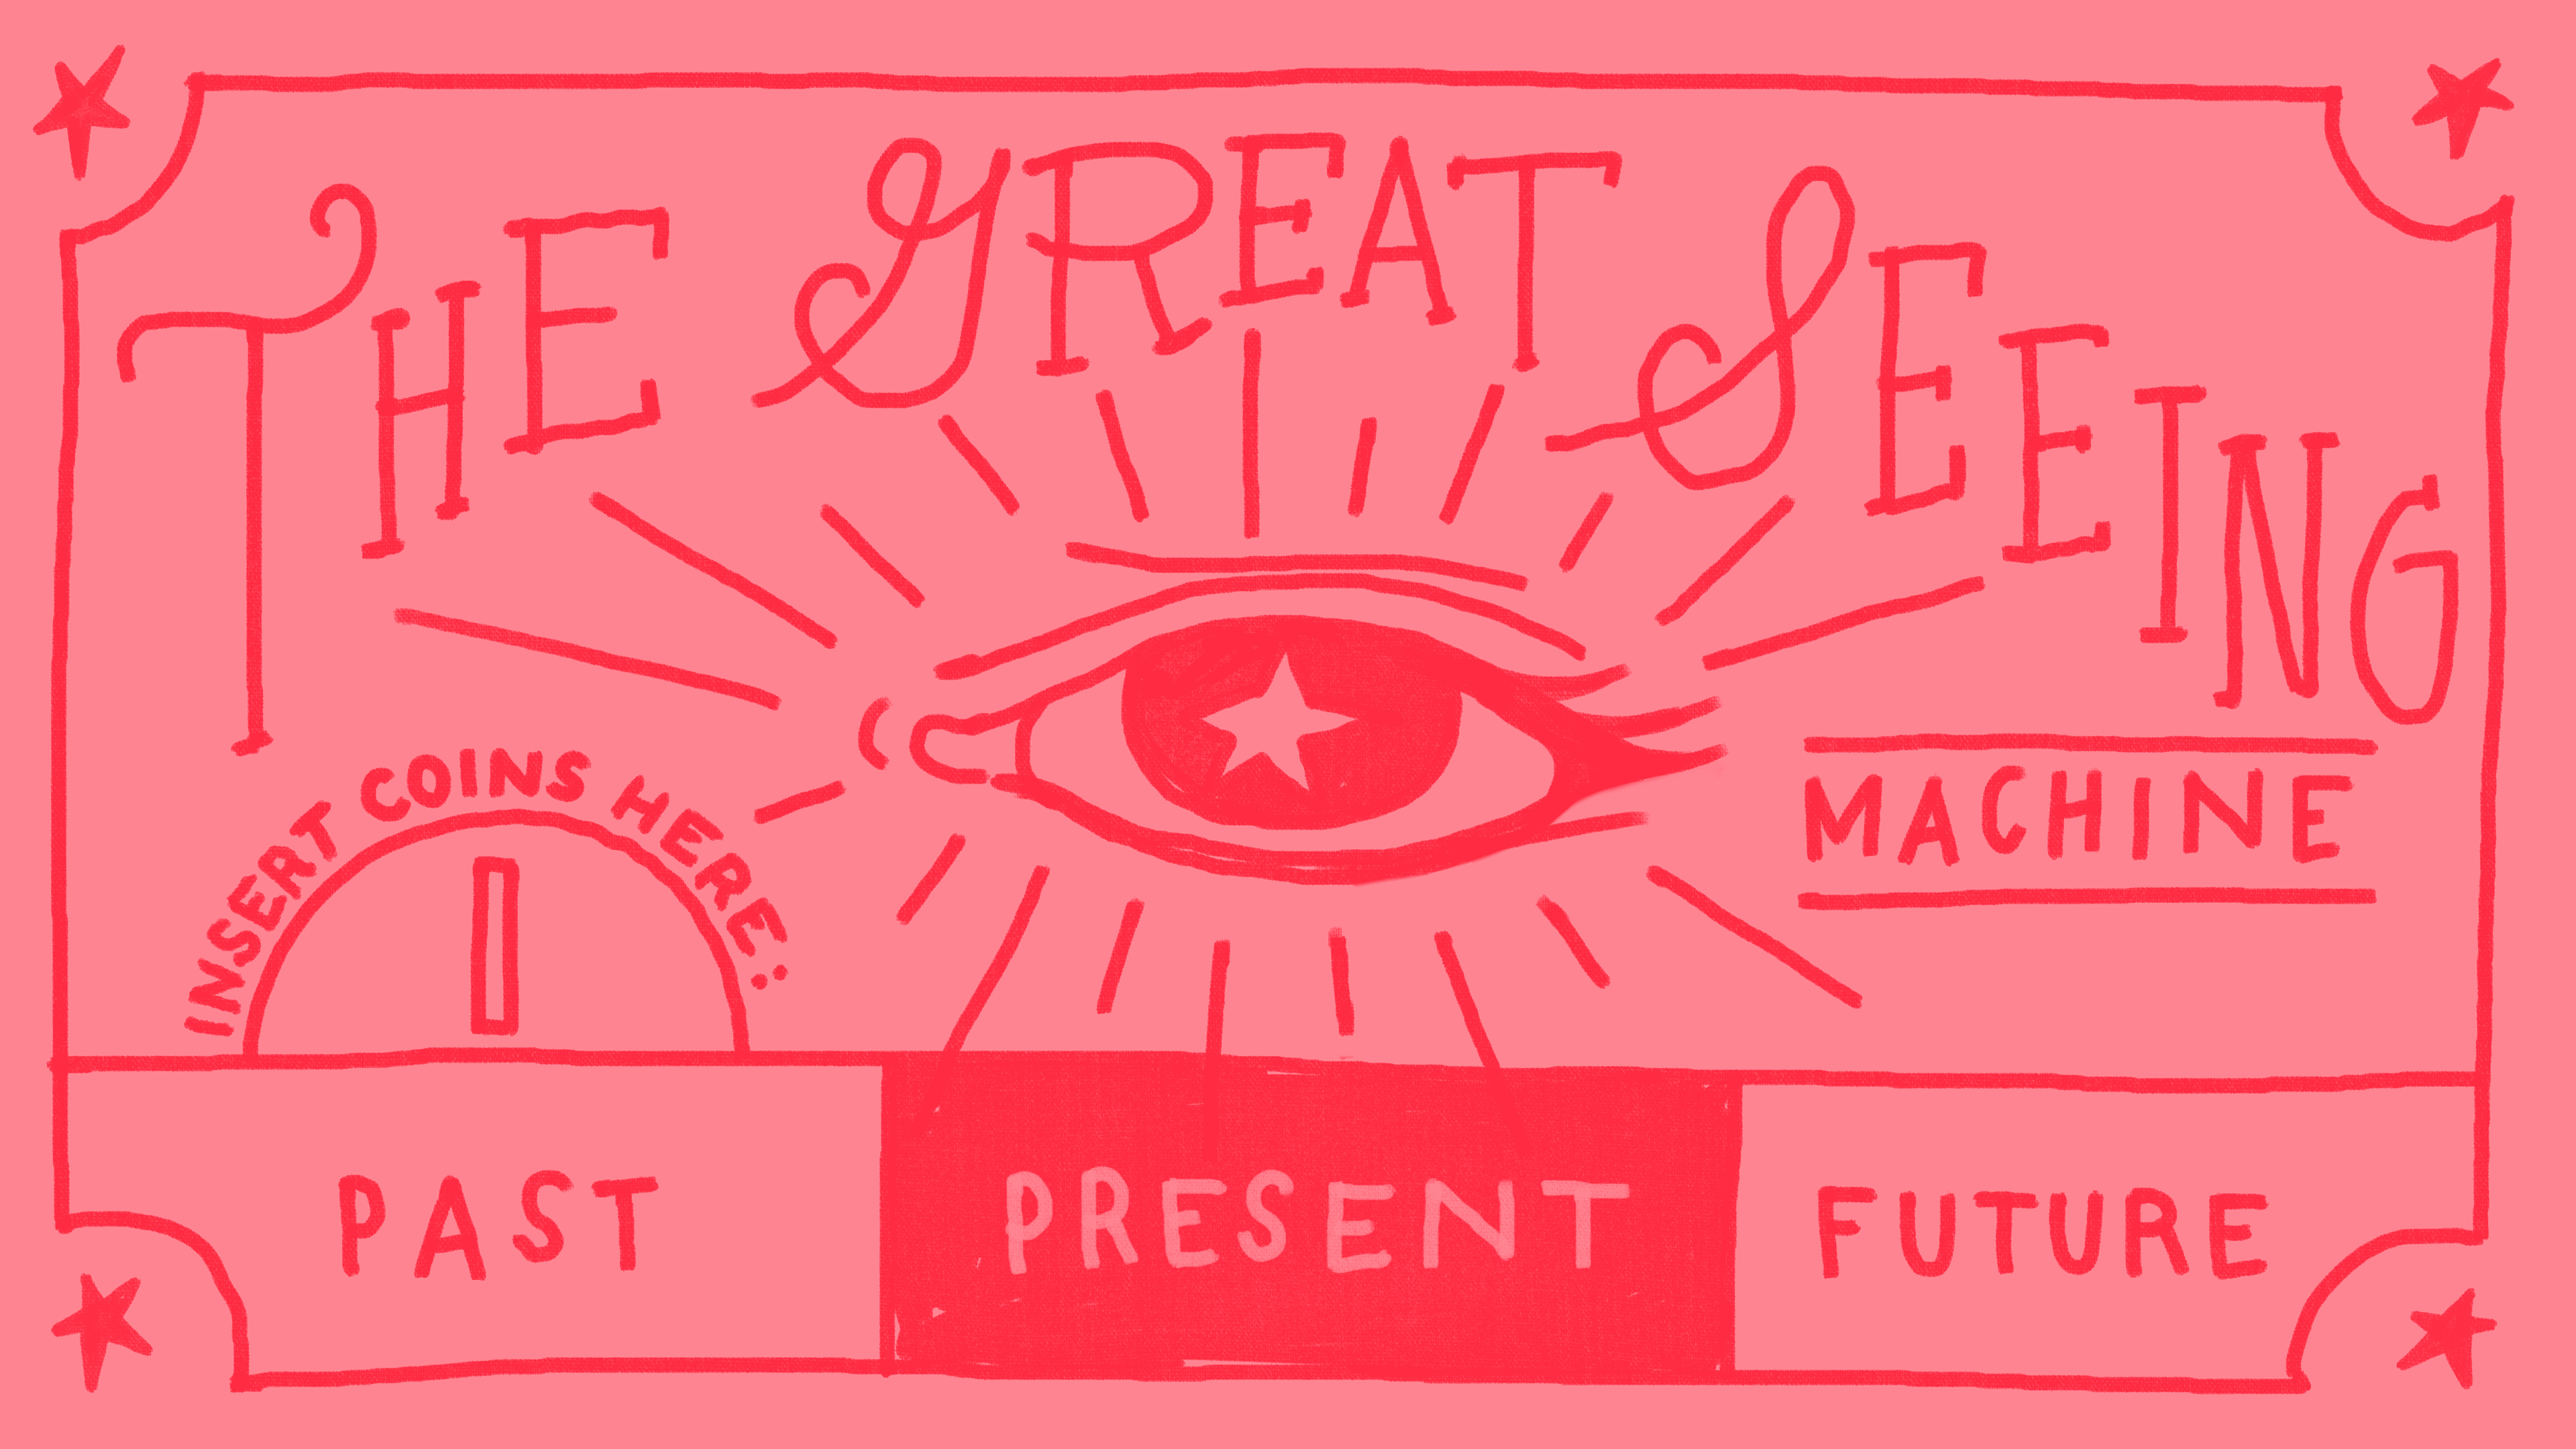 THE GREAT SEEING
MACHINE
INSERT COINS HERE:
PAST
PRESENT
FUTURE